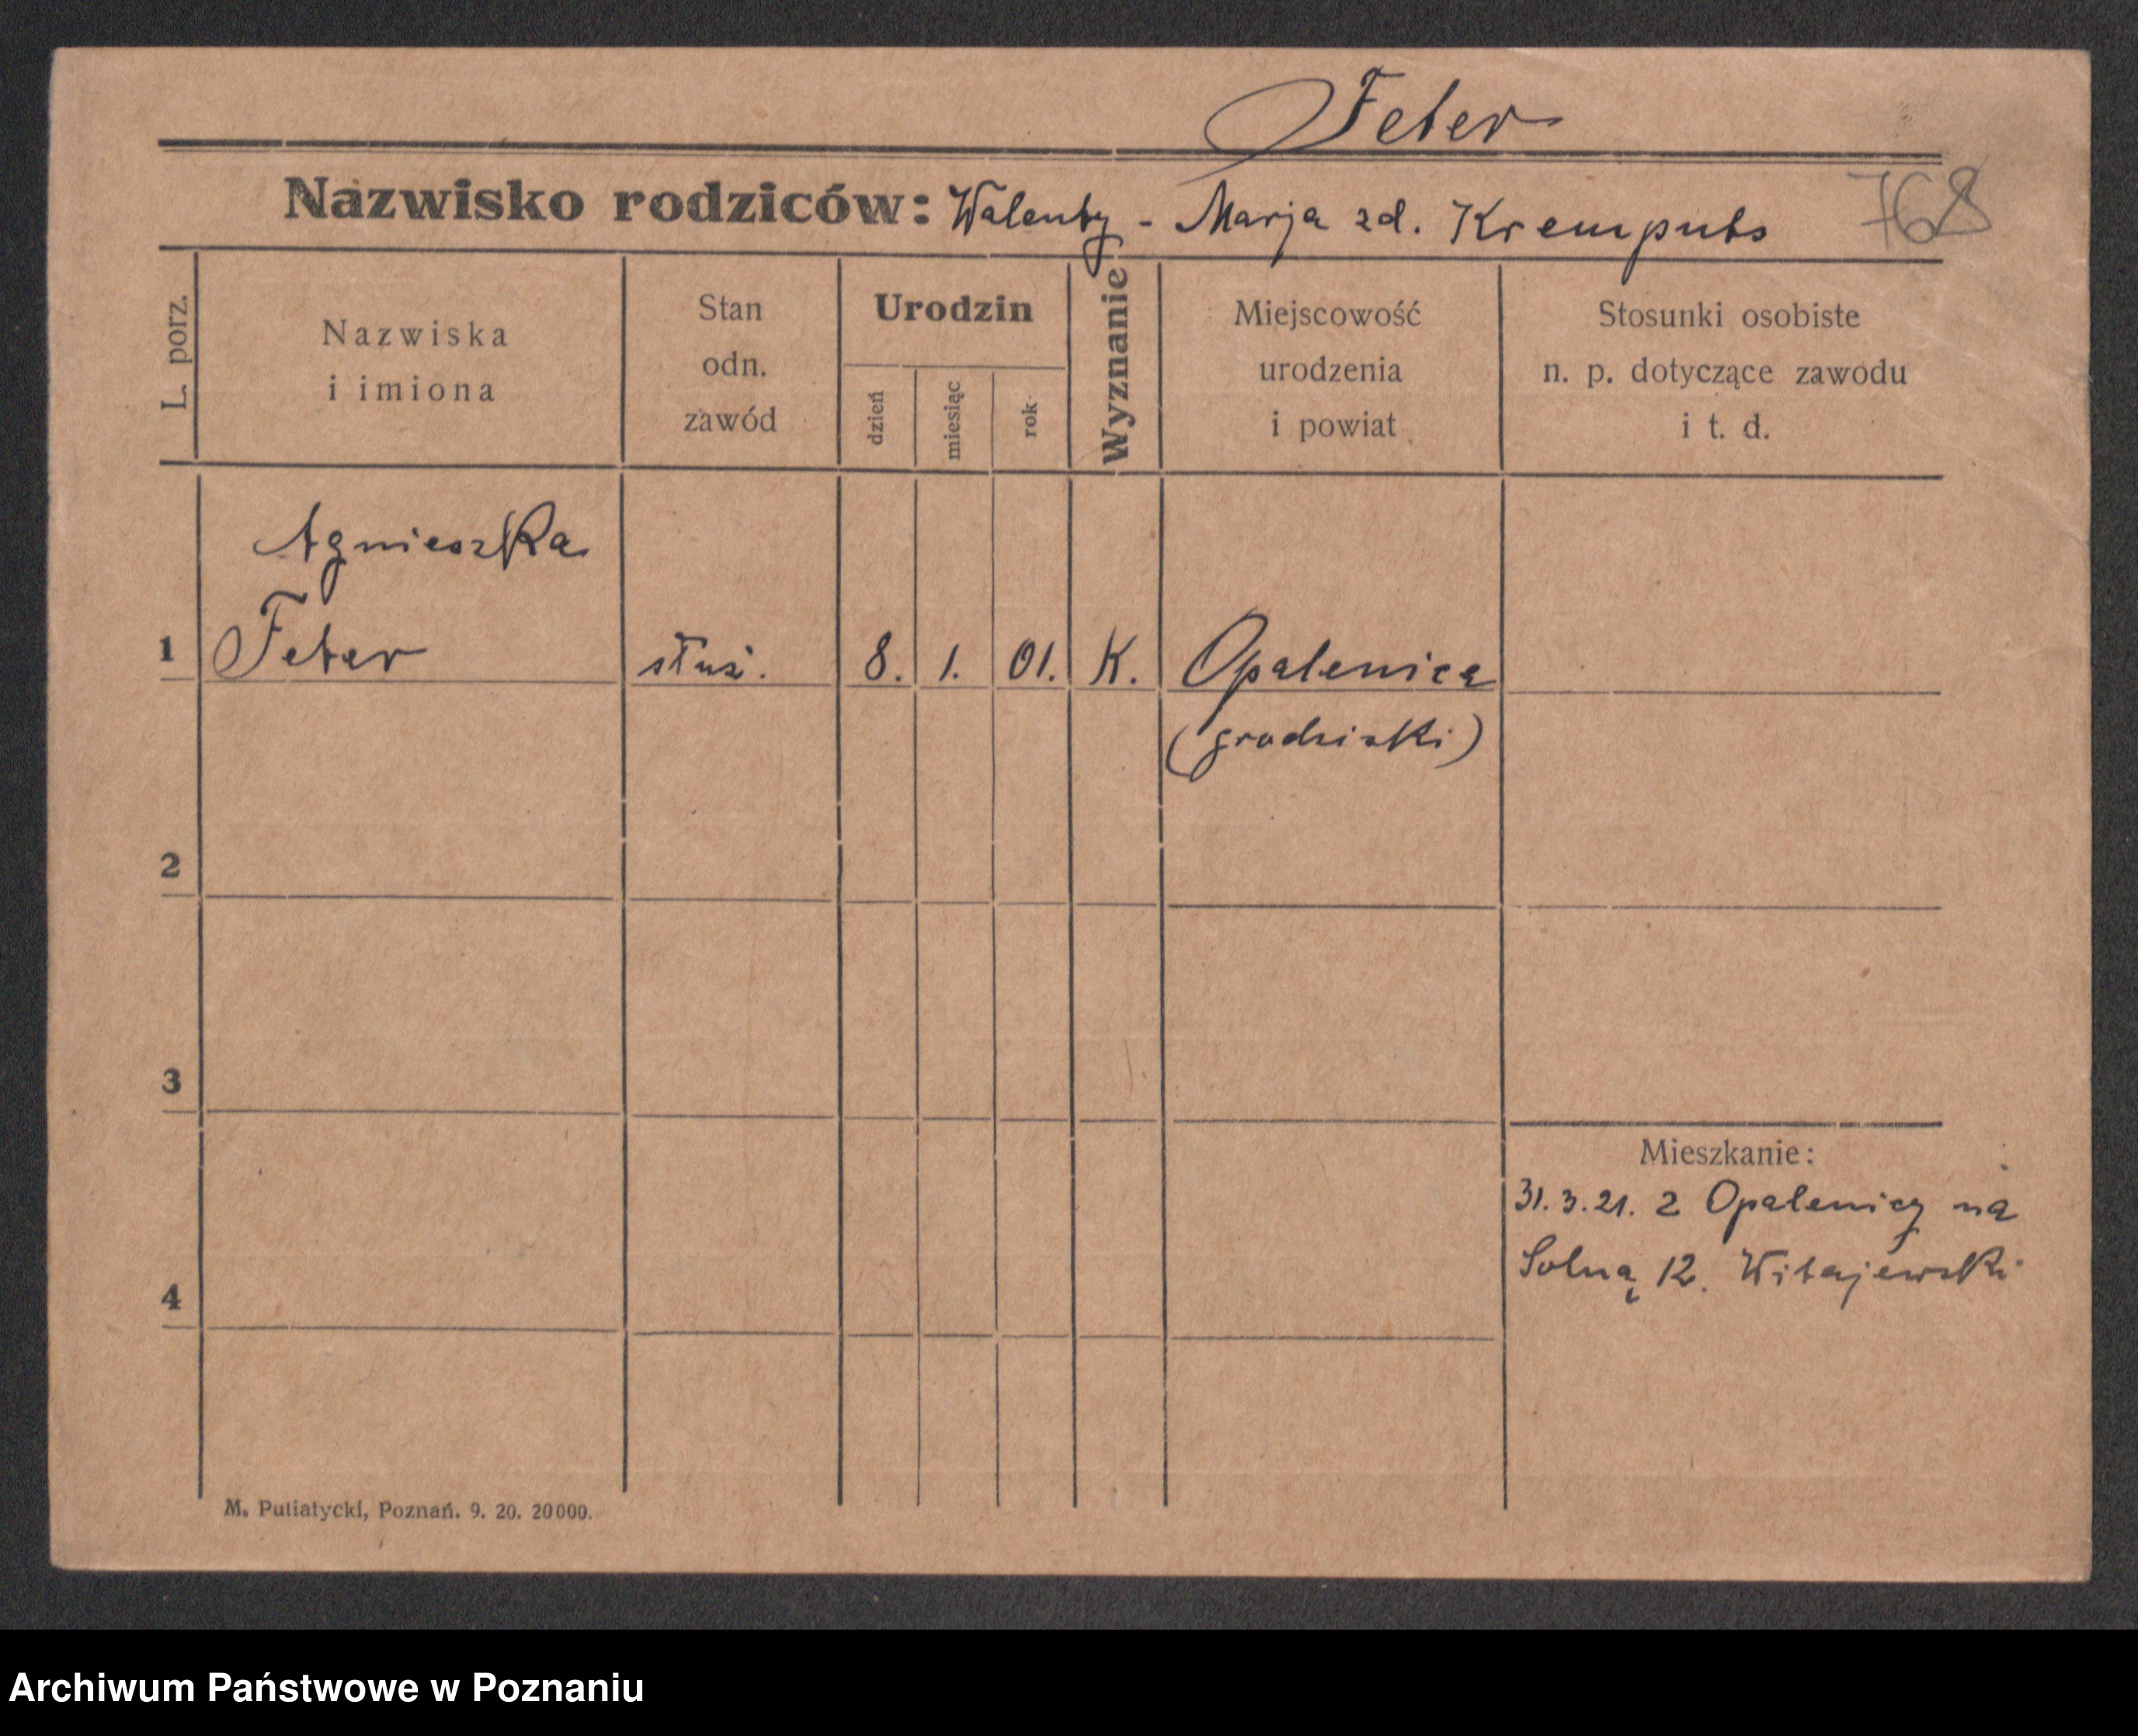 Feter
Nazwisko rodziców: Walenty - Marja zd. Kremputs
768
L. porz.
Nazwiska
i imiona
Stan
odn.
zawód
Urodzin
dzień
miesiąc
rok
Wyznanie
Miejscowość
urodzenia
i powiat
Stosunki osobiste
n. p. dotyczące zawodu
i t. d.
Agnieszka
1 Feter służ. 8. 1. 01. K. Opalenica
(grodziski)
2
3
Mieszkanie:
31.3.21. z Opalenicy na
Solną 12. Witajewski
4
M. Putiatycki, Poznań. 9. 20. 20000.
Archiwum Państwowe w Poznaniu